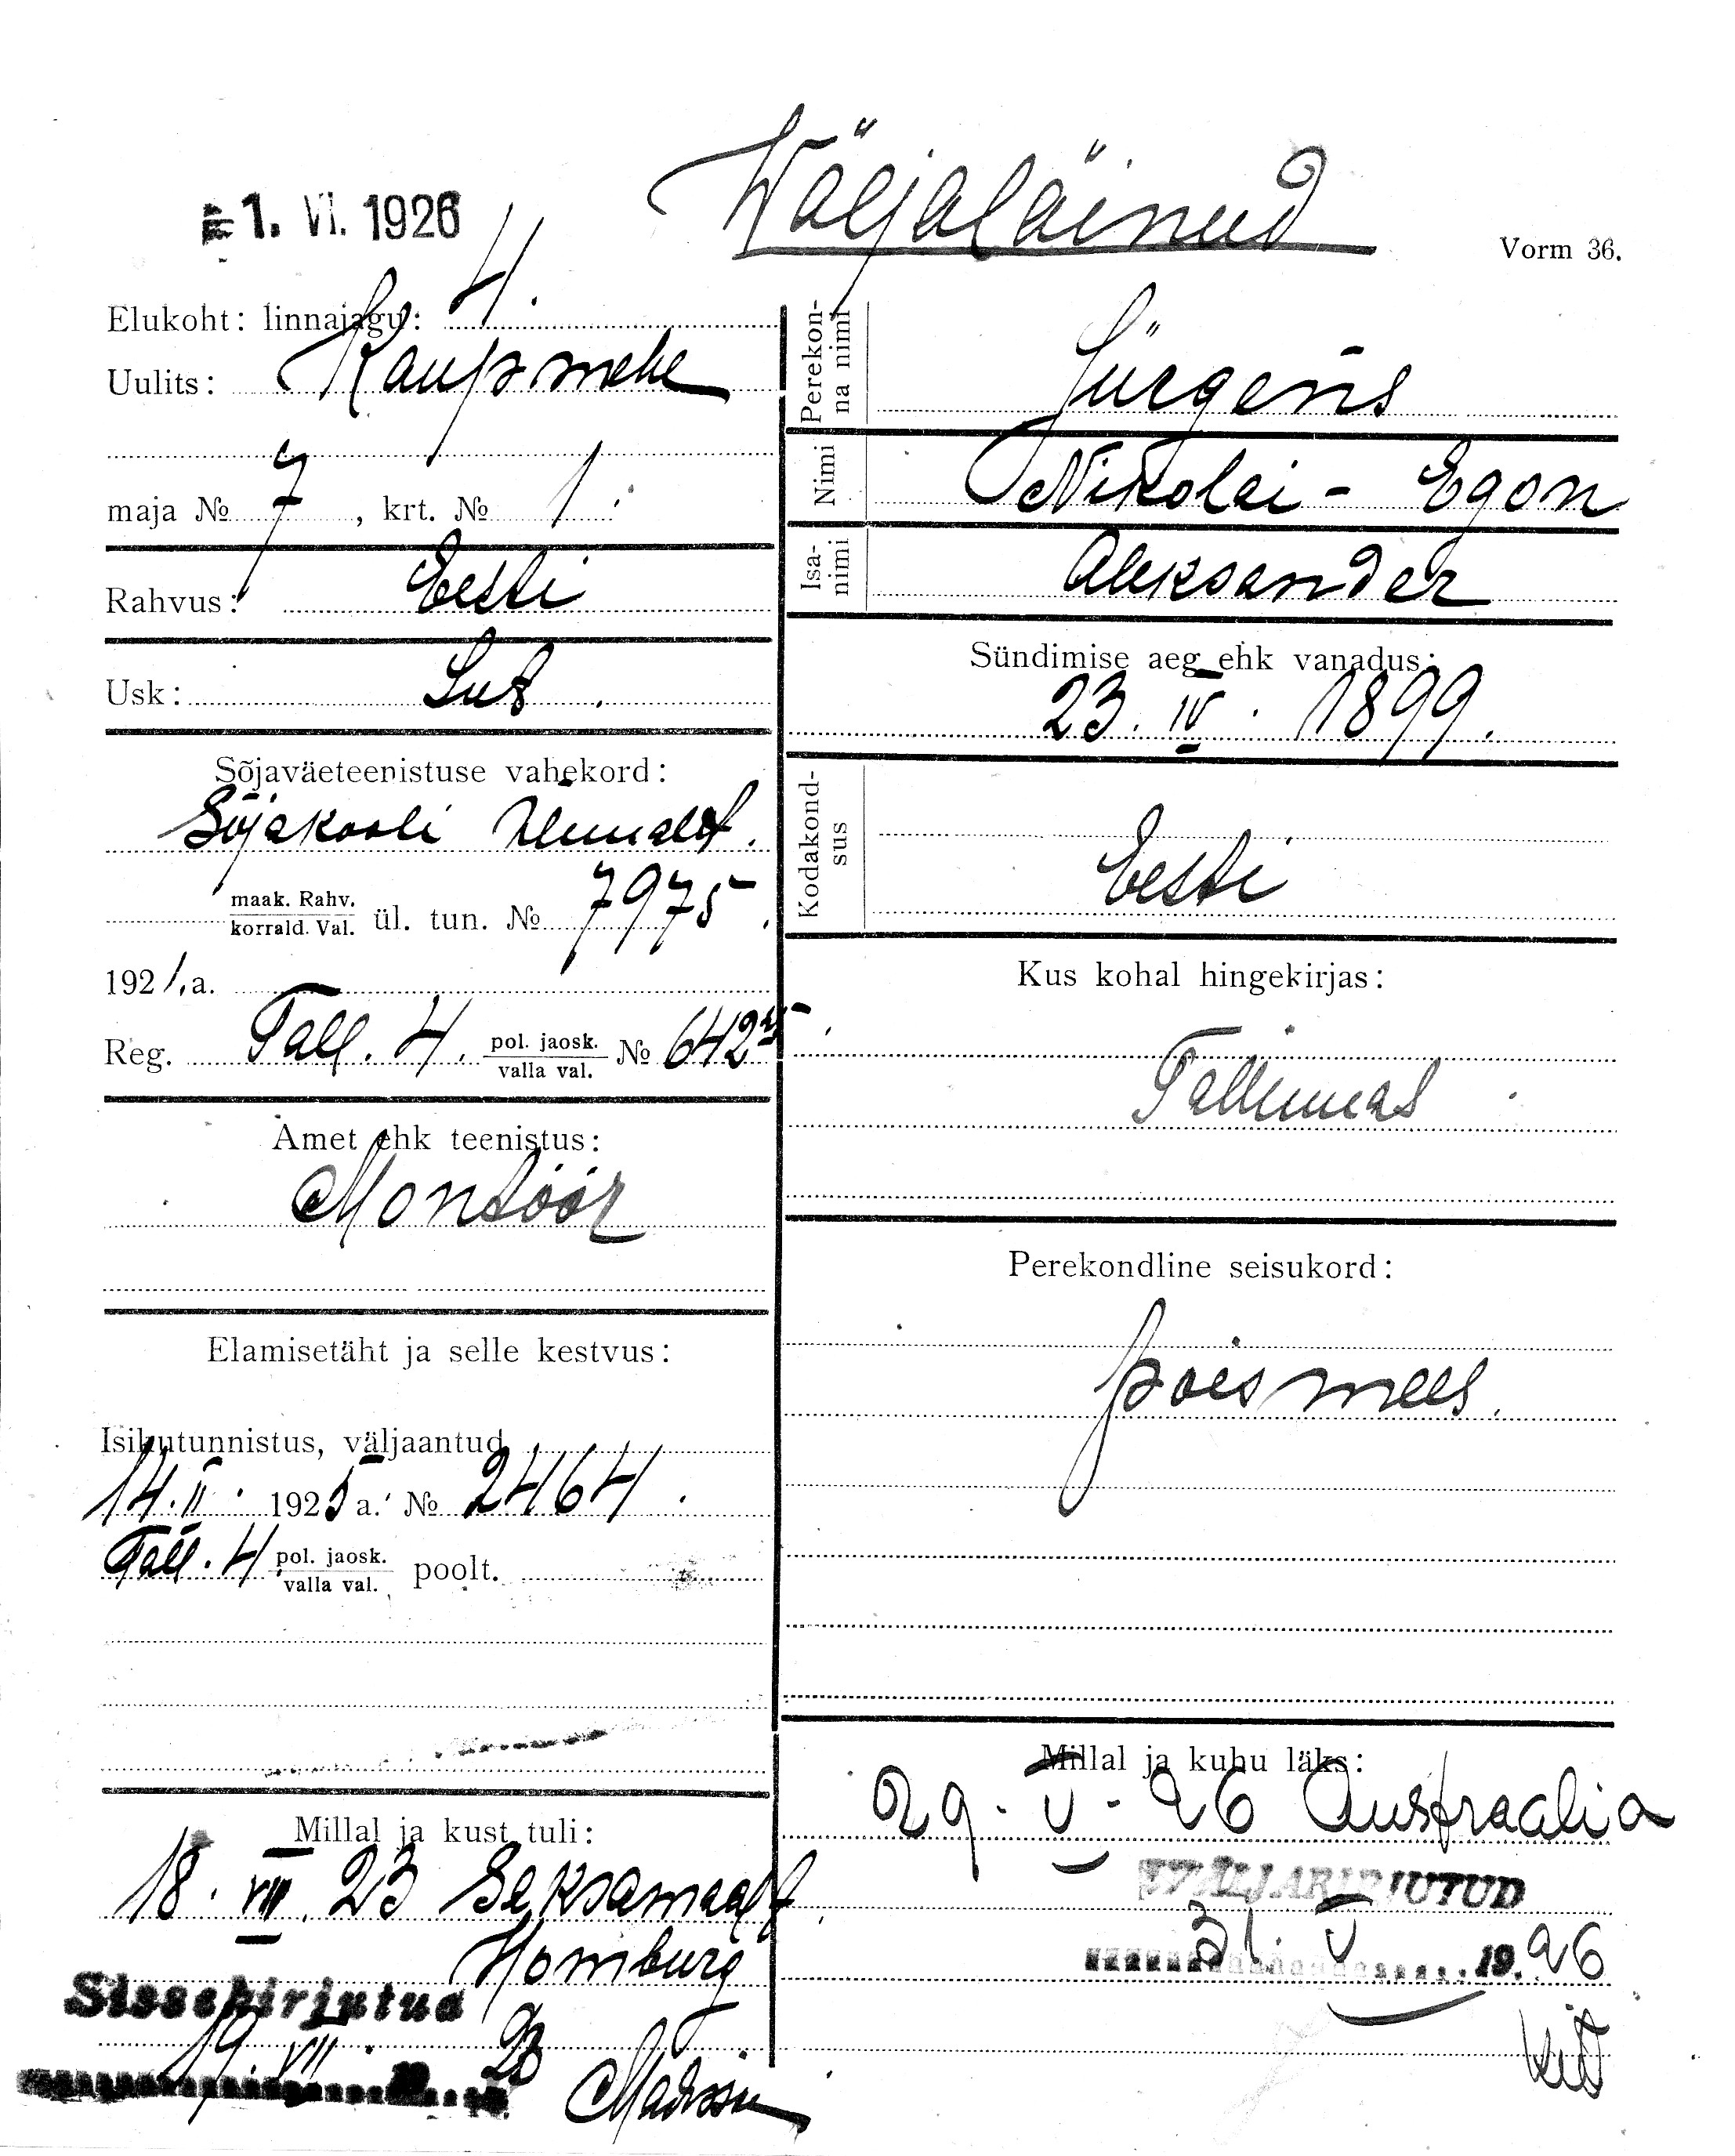 1. VI. 1926
Wäljaläinud
Vorm 36.
Elukoht: linnajagu: 4.
Uulits: Kaupmehe
maja № 7, krt. № 1.
Rahvus: Eesti
Usk: Lut.
Sõjaväeteenistuse vahekord:
Sõjakooli ülemalt.
maak. Rahv.
korrald. Val. ül. tun. № 7975.
1921.a.
Reg. Tall. 4. pol. jaosk. № 6425
valla val.
Amet ehk teenistus:
Montöör
Elamisetäht ja selle kestvus:
Isikutunnistus, väljaantud
14. II. 1925 a. № 2464.
Tall. 4 pol. jaosk. poolt.
valla val.
Millal ja kust tuli:
18. VII. 23 Saksamaalt.
Homburg
Sissekirjutud
19. VII. 23
Perekonna nimi
Jürgens
Nimi
Nikolai - Egon
Isanimi
Aleksander
Sündimise aeg ehk vanadus:
23. IV. 1899.
Kodakondsus
Eesti
Kus kohal hingekirjas:
Tallinnas
Perekondline seisukord:
poismees.
Millal ja kuhu läks:
29. V. 26 Austraalia
VÄLJAKIRJUTUD
31. V 1926